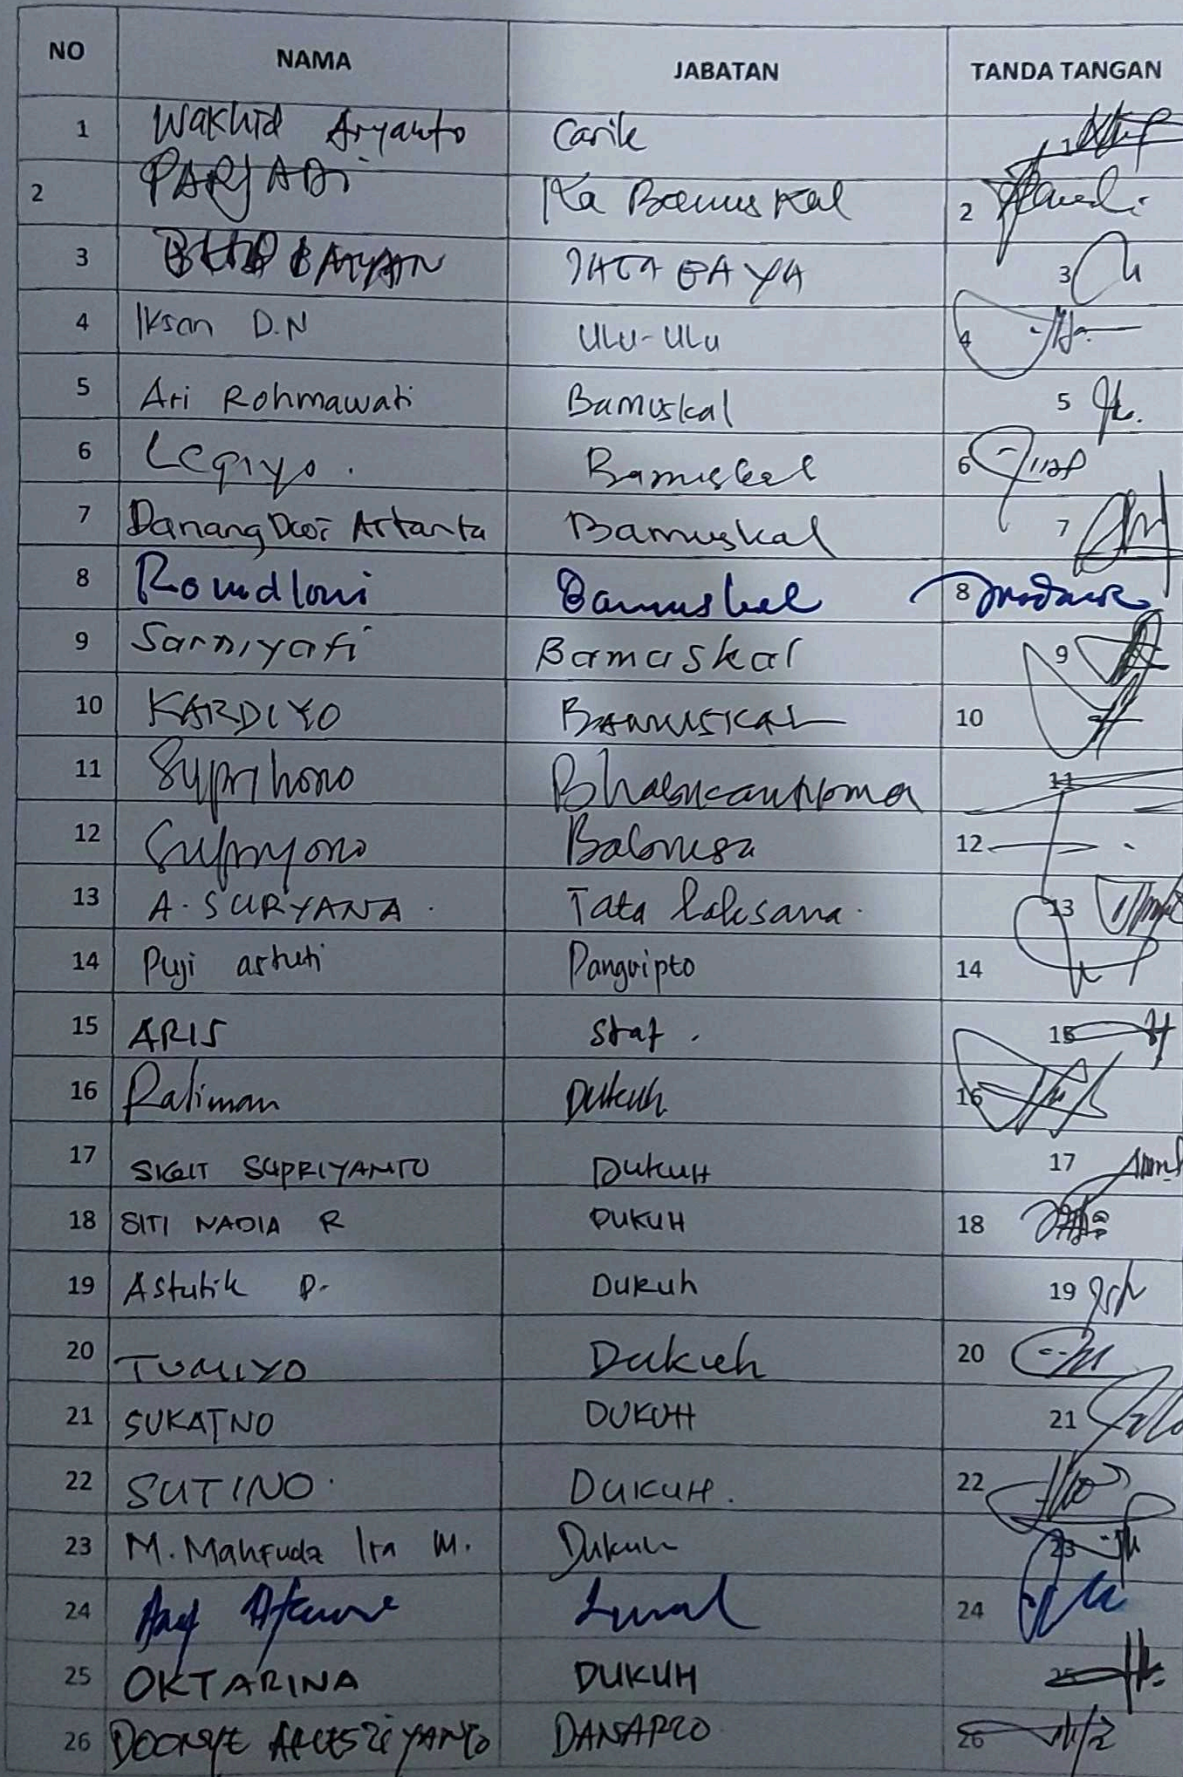 NO NAMA JABATAN TANDA TANGAN
1 Wakhid Aryanto Carik 1
2 PARJADI Ka Bamuskal 2
3 BAYAN JAGABAYA 3
4 Iksan D.N Ulu-Ulu 4
5 Ari Rohmawati Bamuskal 5
6 Legiyo. Bamuskal 6
7 Danang Dwi Artanta Bamuskal 7
8 Romdloni Bamuskal 8
9 Sarniyati Bamuskal 9
10 KARDIYO BAMUSKAL 10
11 Suprihono Bhabinkamtibmas 11
12 Supriyono Babinsa 12
13 A. SURYANA. Tata Laksana. 13
14 Puji astuti Pangripto 14
15 ARIS Staf. 15
16 Ratiman Dukuh 16
17 SIGIT SUPRIYANTO DUKUH 17
18 SITI NADIA R DUKUH 18
19 Astutik P. DUKUh 19
20 TUMIYO Dukuh 20
21 SUKATNO DUKUH 21
22 SUTINO. DUKUH. 22
23 M. Mahfudz Ira M. Dukuh 23
24 24
25 OKTARINA DUKUH 25
26 DANARTO 26